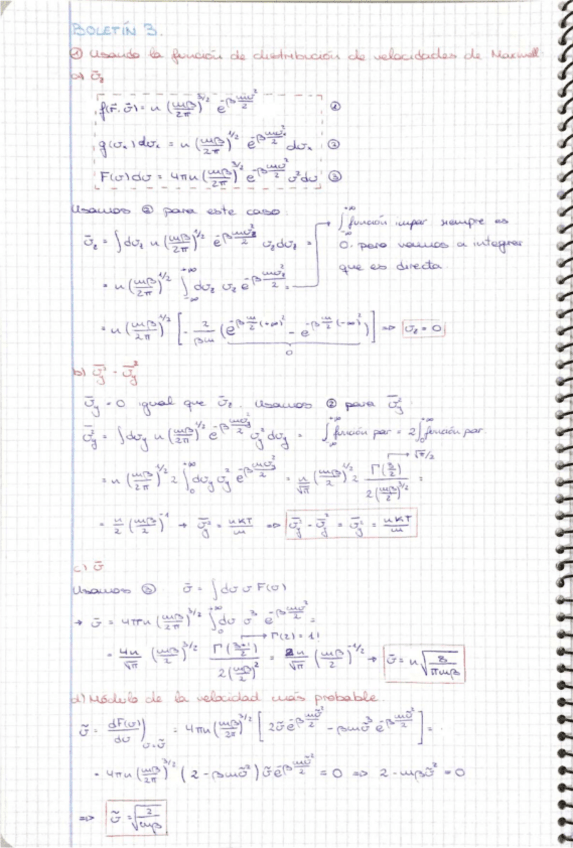 BOLETÍN 3.
① Usando la función de distribución de velocidades de Maxwell:
a) v̄z
f(r̄,v̄) = n (mβ/2π)^3/2 e^(-β mv²/2) ①
g(vx)dvx = n (mβ/2π)^1/2 e^(-β mvx²/2) dvx ②
F(v)dv = 4πn (mβ/2π)^3/2 e^(-β mv²/2) v² dv ③
Usamos ② para este caso:
v̄z = ∫dvz n (mβ/2π)^1/2 e^(-β mvz²/2) vz dvz = → ∫_{-∞}^{+∞} función impar siempre es
0, pero vamos a integrar
que es directa
= n (mβ/2π)^1/2 ∫_{-∞}^{+∞} dvz vz e^(-β mvz²/2) =
= n (mβ/2π)^1/2 [ -2/βm (e^(-β m/2 (+∞)²) - e^(-β m/2 (-∞)²)) ] ⇒ v̄z = 0
0
b) v̄y² - v̄y²
v̄y = 0 igual que v̄z. Usamos ② para v̄y²:
v̄y² = ∫dvy n (mβ/2π)^1/2 e^(-β mvy²/2) vy² dvy = ∫_{-∞}^{+∞} función par = 2∫_0^{+∞} función par.
= n (mβ/2π)^1/2 2 ∫_0^{+∞} dvy vy² e^(-β mvy²/2) = n/√π (mβ/2)^1/2 2 Γ(3/2)/2(mβ/2)^3/2 = → √π/2
= n/2 (mβ/2)^-1 → v̄y² = nKT/m ⇒ v̄y² - v̄y² = v̄y² = nKT/m
c) v̄
Usamos ③ v̄ = ∫dv v F(v)
→ v̄ = 4πn (mβ/2π)^3/2 ∫_0^{+∞} dv v³ e^(-β mv²/2) =
= 4n/√π (mβ/2)^3/2 Γ((3+1)/2)/2(mβ/2)² → Γ(2) = 1! = 2n/√π (mβ/2)^-1/2 → v̄ = n √(8/πmβ)
d) Módulo de la velocidad más probable.
ṽ = dF(v)/dv |v=ṽ = 4πn (mβ/2π)^3/2 [ 2ṽ e^(-β mṽ²/2) - βmṽ³ e^(-β mṽ²/2) ] =
= 4πn (mβ/2π)^3/2 (2 - βmṽ²) ṽ e^(-β mṽ²/2) = 0 ⇒ 2 - mβṽ² = 0
⇒ ṽ = √(2/mβ)